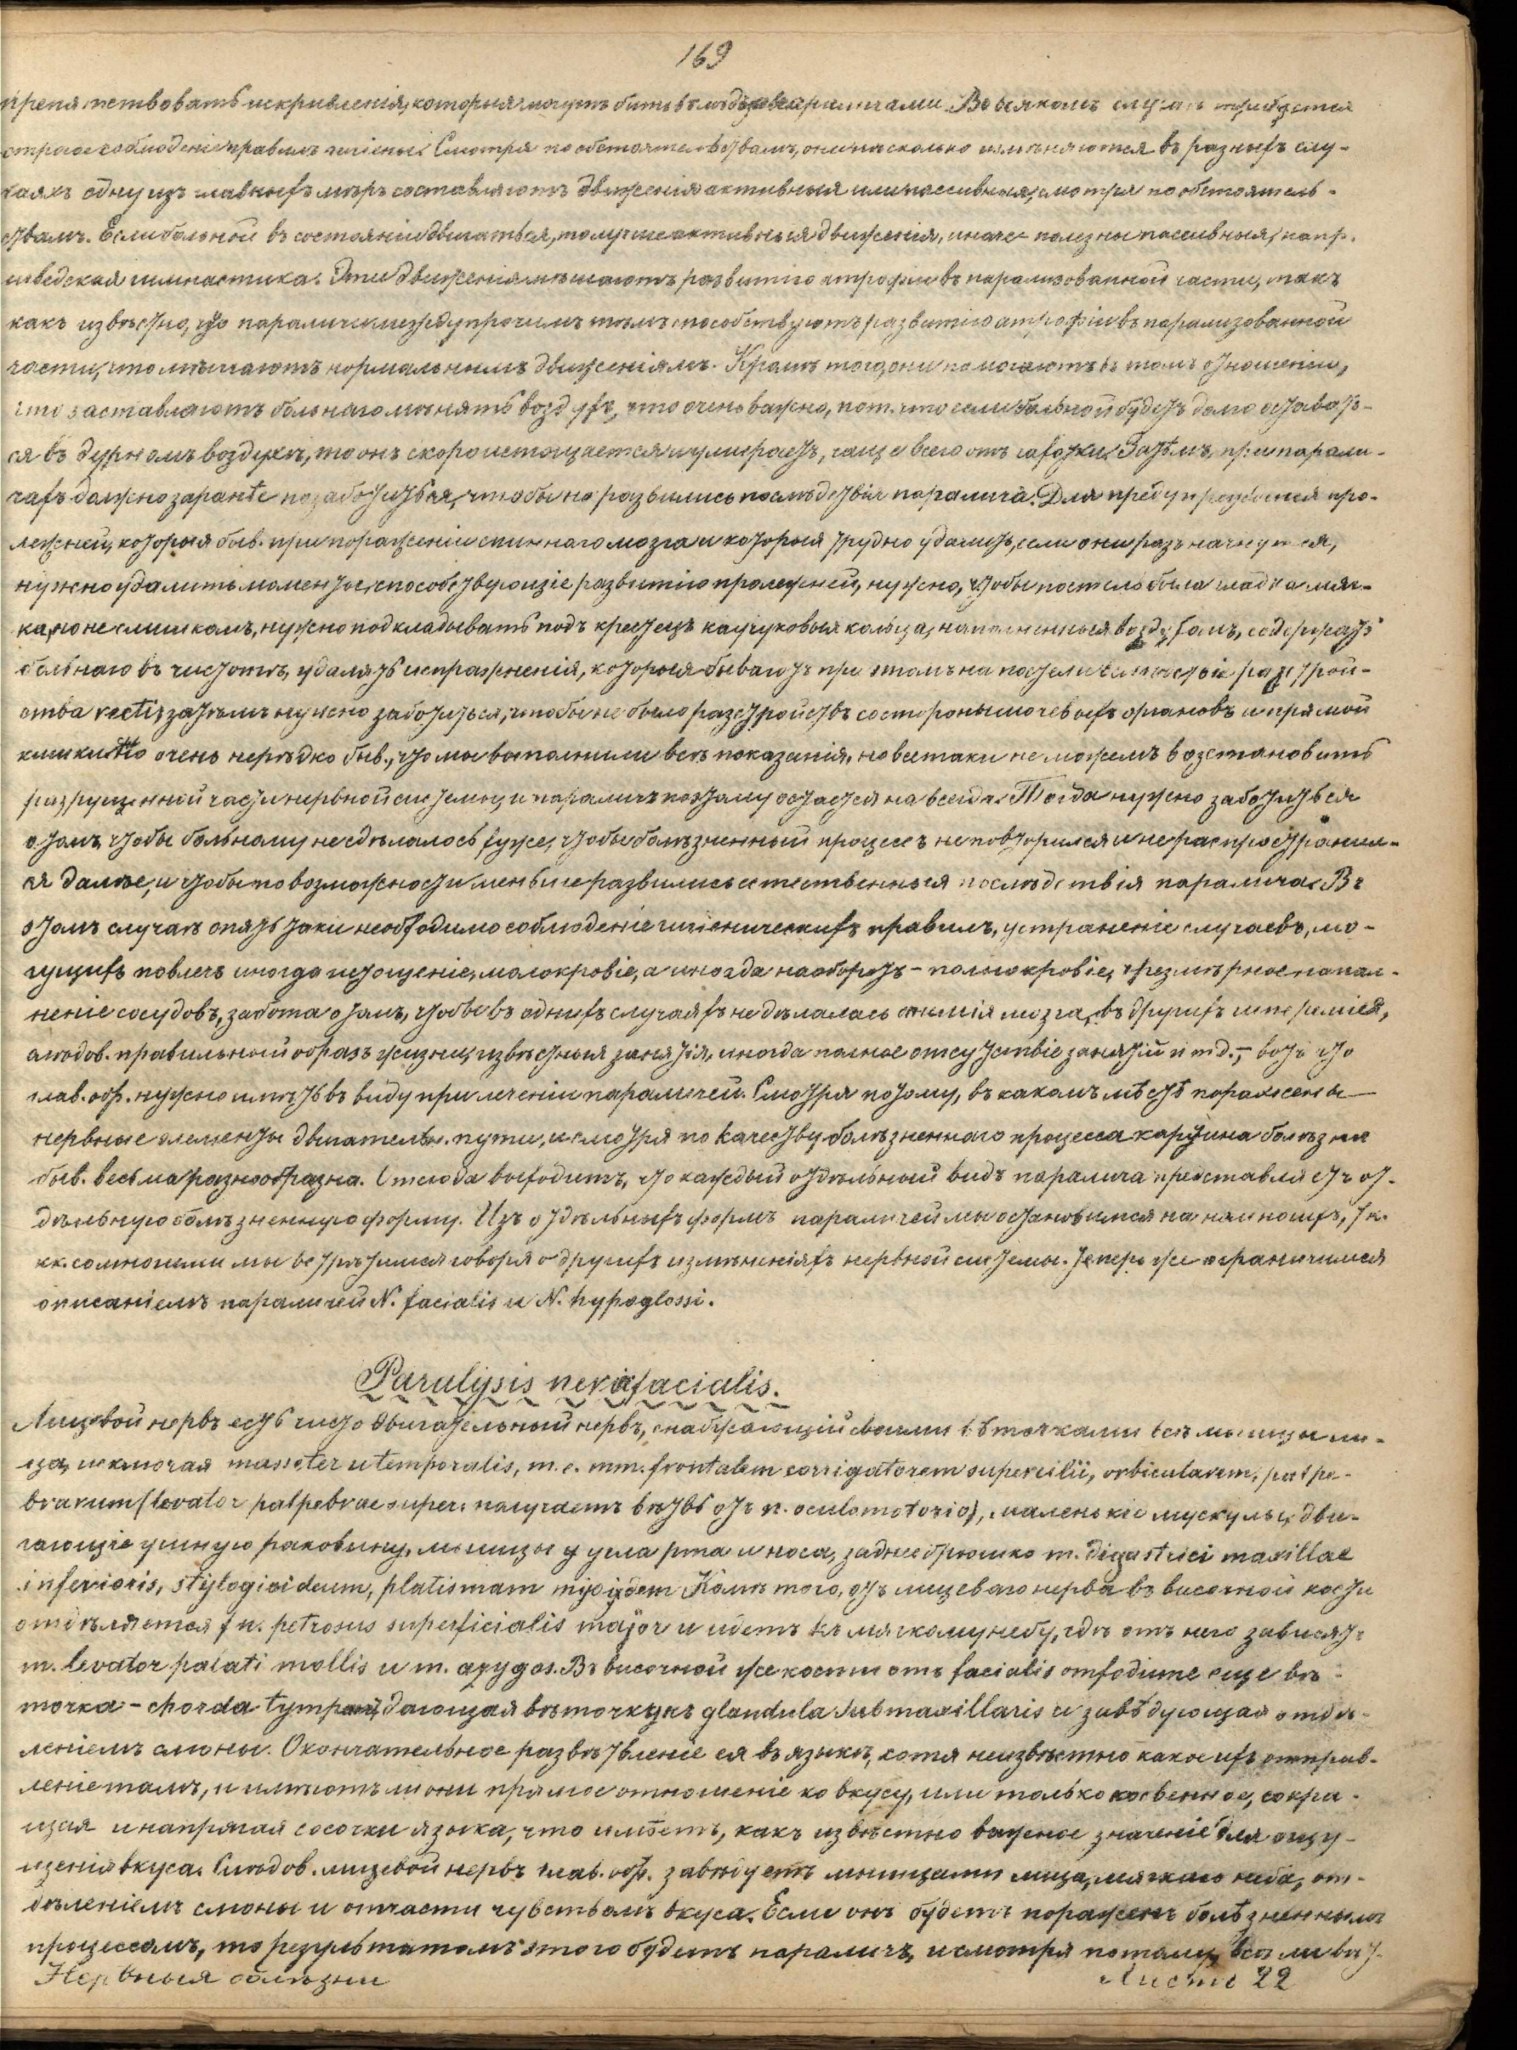 169
препятствовать искривленія, которыя могутъ быть вслѣдствіе параличами. Во всякомъ случаѣ требуется
строгое соблюденіе правилъ гигіены. Смотря по обстоятельствамъ, они нѣсколько измѣняются въ разныхъ слу-
чаяхъ одну изъ главныхъ мѣръ составляютъ движенія активныя или пассивныя, смотря по обстоятель-
ствамъ. Если больной въ состояніи двигаться, то лучше активныя движенія, иначе полезны пассивныя, напр.
шведская гимнастика. Эти движенія мѣшаютъ развитію атрофіи въ парализованной части, такъ
какъ извѣстно, что параличи между прочимъ тѣмъ способствуютъ развитію атрофіи въ парализованной
части, что мѣшаютъ нормальнымъ движеніямъ. Кромѣ того, они помогаютъ въ томъ отношеніи,
что заставляютъ больнаго мѣнять воздухъ, что очень важно, пот. что если больной будетъ долго оставать-
ся въ дурномъ воздухѣ, то онъ скоро истощается и умираетъ, чаще всего отъ чахотки. Затѣмъ, при парали-
чахъ должно заранѣе позаботиться, чтобы не развились послѣдствія паралича. Для предупрежденія про-
лежней, которыя быв. при пораженіи спиннаго мозга и которыя трудно удалить, если они разъ начнутся,
нужно удалить моменты, способствующіе развитію пролежней, нужно, чтобы постель была гладка мяг-
ка, но не слишкомъ, нужно подкладывать подъ крестецъ каучуковыя кольца, наполненныя воздухомъ, содержать
больнаго въ чистотѣ, удалять испражненія, которыя бываютъ при этомъ на постели вслѣдствіе разстрой-
ства recti, затѣмъ нужно заботиться, чтобы не было разстройствъ со стороны мочевыхъ органовъ и прямой
кишки. Но очень нерѣдко быв., что мы выполнили всѣ показанія, но всетаки не можемъ возстановить
разрушенной части нервной системы, и параличъ поэтому остается на всегда. Тогда нужно заботиться
о томъ, чтобы больному не сдѣлалось хуже, чтобы болѣзненный процессъ не повторился и не распространил-
ся далѣе, и чтобы по возможности меньше развились естественныя послѣдствія паралича. Въ
этомъ случаѣ опять таки необходимо соблюденіе гигіеническихъ правилъ, устраненіе случаевъ, мо-
гущихъ повлечь иногда истощеніе, малокровіе, а иногда наоборотъ - полнокровіе, чрезмѣрное напол-
неніе сосудовъ, забота о томъ, чтобы въ однихъ случаяхъ не дѣлалась анемія мозга, въ другихъ гиперемія,
слѣдов. правильный образъ жизни, извѣстныя занятія, иногда полное отсутствіе занятій и т.д., - вотъ что
глав. обр. нужно имѣть въ виду при леченіи параличей. Смотря потому, въ какомъ мѣстѣ поражены
нервные элементы двигательн. пути, и смотря по качеству болѣзненнаго процесса картина болѣзни
быв. весьма разнообразна. Отсюда выходитъ, что каждый отдѣльный видъ паралича представляетъ от-
дѣльную болѣзненную форму. Изъ отдѣльныхъ формъ параличей мы остановимся на немногихъ, т.к.
кк. со многими мы встрѣтимся говоря о другихъ измѣненіяхъ нервной системы. Теперь же ограничимся
описаніемъ параличей N. facialis и N. hypoglossi.
Paralysis nervi facialis.
Лицевой нервъ есть чисто двигательный нервъ, снабжающій своими вѣточками всѣ мышцы ли-
ца, исключая masseter и temporalis, т.е. mm. frontalem corrigatorem supercilii, orbicularem, palpe-
brarum (levator palpebrae super. получаетъ вѣтвь отъ n. oculomotorio), маленькіе мускулы, дви-
гающіе ушную раковину, мышцы у угла рта и носа, заднее брюшко m. digastrici maxillae
inferioris, stylogioideum, platismam myoidem. Кромѣ того, отъ лицеваго нерва въ височной кости
отдѣляется n. petrosus superficialis major и идетъ къ мягкому небу, гдѣ отъ него зависятъ
m. levator palati mollis и m. azygos. Въ височной же кости отъ facialis отходитъ еще вѣ-
точка - chorda tympani, дающая вѣточку къ glandula submaxillaris и завѣдующая отдѣ-
леніемъ слюны. Окончательное развѣтвленіе ея въ языкѣ, хотя неизвѣстно какое ихъ отправ-
леніе тамъ, и имѣютъ ли они прямое отношеніе ко вкусу, или только косвенное, сокра-
щая и напрягая сосочки языка, что имѣетъ, какъ извѣстно важное значеніе для ощу-
щенія вкуса. Слѣдов. лицевой нервъ глав. обр. завѣдуетъ мышцами лица, мягкаго неба, от-
дѣленіемъ слюны и отчасти чувствомъ вкуса. Если онъ будетъ пораженъ болѣзненнымъ
процессомъ, то результатомъ этого будетъ параличъ, и смотря потому, всѣ ли вѣт-
Нервныя болѣзни Листъ 22